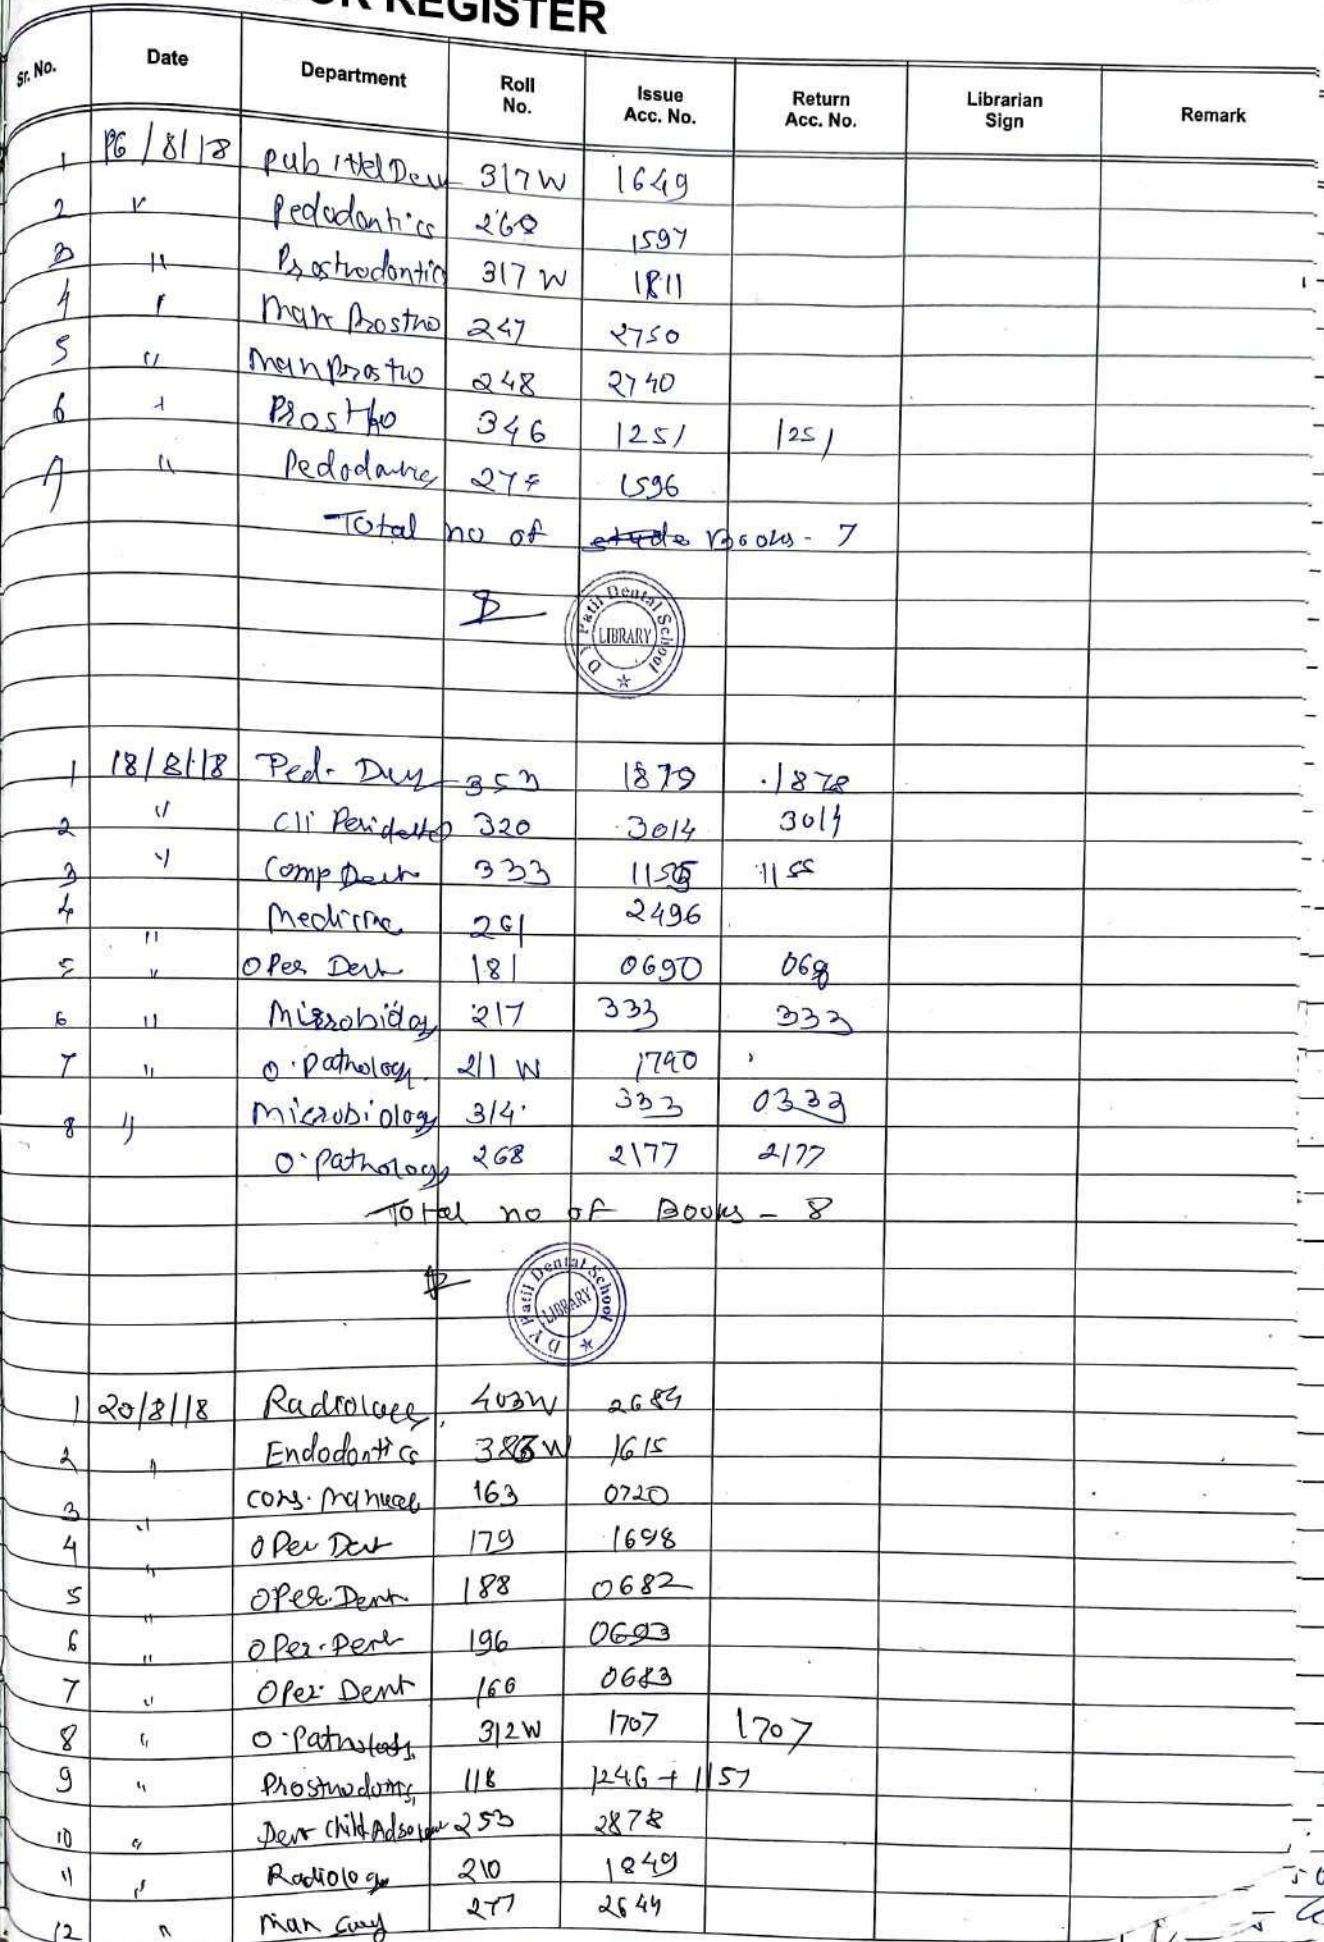 OR REGISTER
Sr. No. Date Department Roll No. Issue Acc. No. Return Acc. No. Librarian Sign Remark
1 16/8/18 Pub Hel Den 317 W 1649
2 " Pedodontics 268 1597
3 " Prosthodontic 317 W 1811
4 " Man Prostho 247 2750
5 " Man Prostho 248 2740
6 " Prostho 346 1251 1251
7 " Pedodontics 274 1596
Total no of Books - 7
D Y Patil Dental School LIBRARY
1 18/8/18 Ped. Den 353 1879 1878
2 " Cli Peridontics 320 3014 3014
3 " Comp Dent 333 1155 1155
4 " Medicine 261 2496
5 " Oper Dent 181 0690 069
6 " Microbiology 217 333 333
7 " O. Pathology 211 W 1790
8 " Microbiology 314 333 0333
O. Pathology 268 2177 2177
Total no of Books - 8
D Y Patil Dental School LIBRARY
1 20/8/18 Radiology 403W 2684
2 " Endodontics 383W 1615
3 " Cons. Manual 163 0720
4 " Oper Dent 179 1698
5 " Oper. Dent 188 0682
6 " Oper. Dent 196 0693
7 " Oper. Dent 166 0683
8 " O. Pathology 312W 1707 1707
9 " Prosthodontics 118 1246 + 1157
10 " Dent Child Adsolen 253 2878
11 " Radiology 210 1849
12 " Man 277 2644